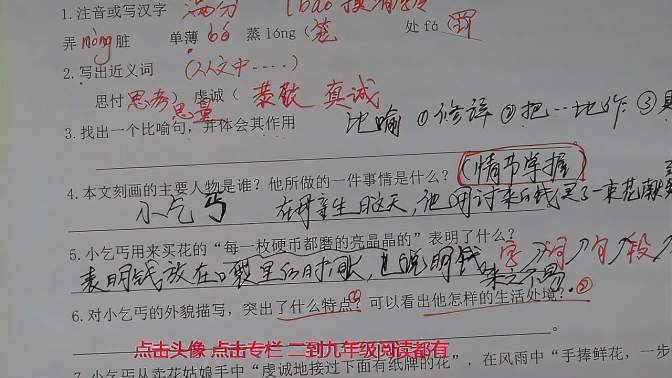 1.注音或写汉字 满分
弄nòng脏 单薄bó 蒸lóng(笼 处fá(罚)
2.写出近义词 (从文中....)
思忖 思考 思量) 虔诚( 恭敬 真诚
3.找出一个比喻句,并体会其作用 比喻 ①修辞 ②把…比作 ③
4.本文刻画的主要人物是谁?他所做的一件事情是什么? (情节掌握)
小乞丐 在母亲生日这天,他用讨来的钱买了一束花献给
5.小乞丐用来买花的“每一枚硬币都磨的亮晶晶的”表明了什么? 字/词/句/段
表明钱放在口袋里的时间长,也说明钱来之不易。
6.对小乞丐的外貌描写,突出了什么特点?①可以看出他怎样的生活处境?②
。
点击头像 点击专栏 二到九年级阅读都有
7.小乞丐从卖花姑娘手中“虔诚地接过下面有纸牌的花”,在风雨中“手捧鲜花,一步